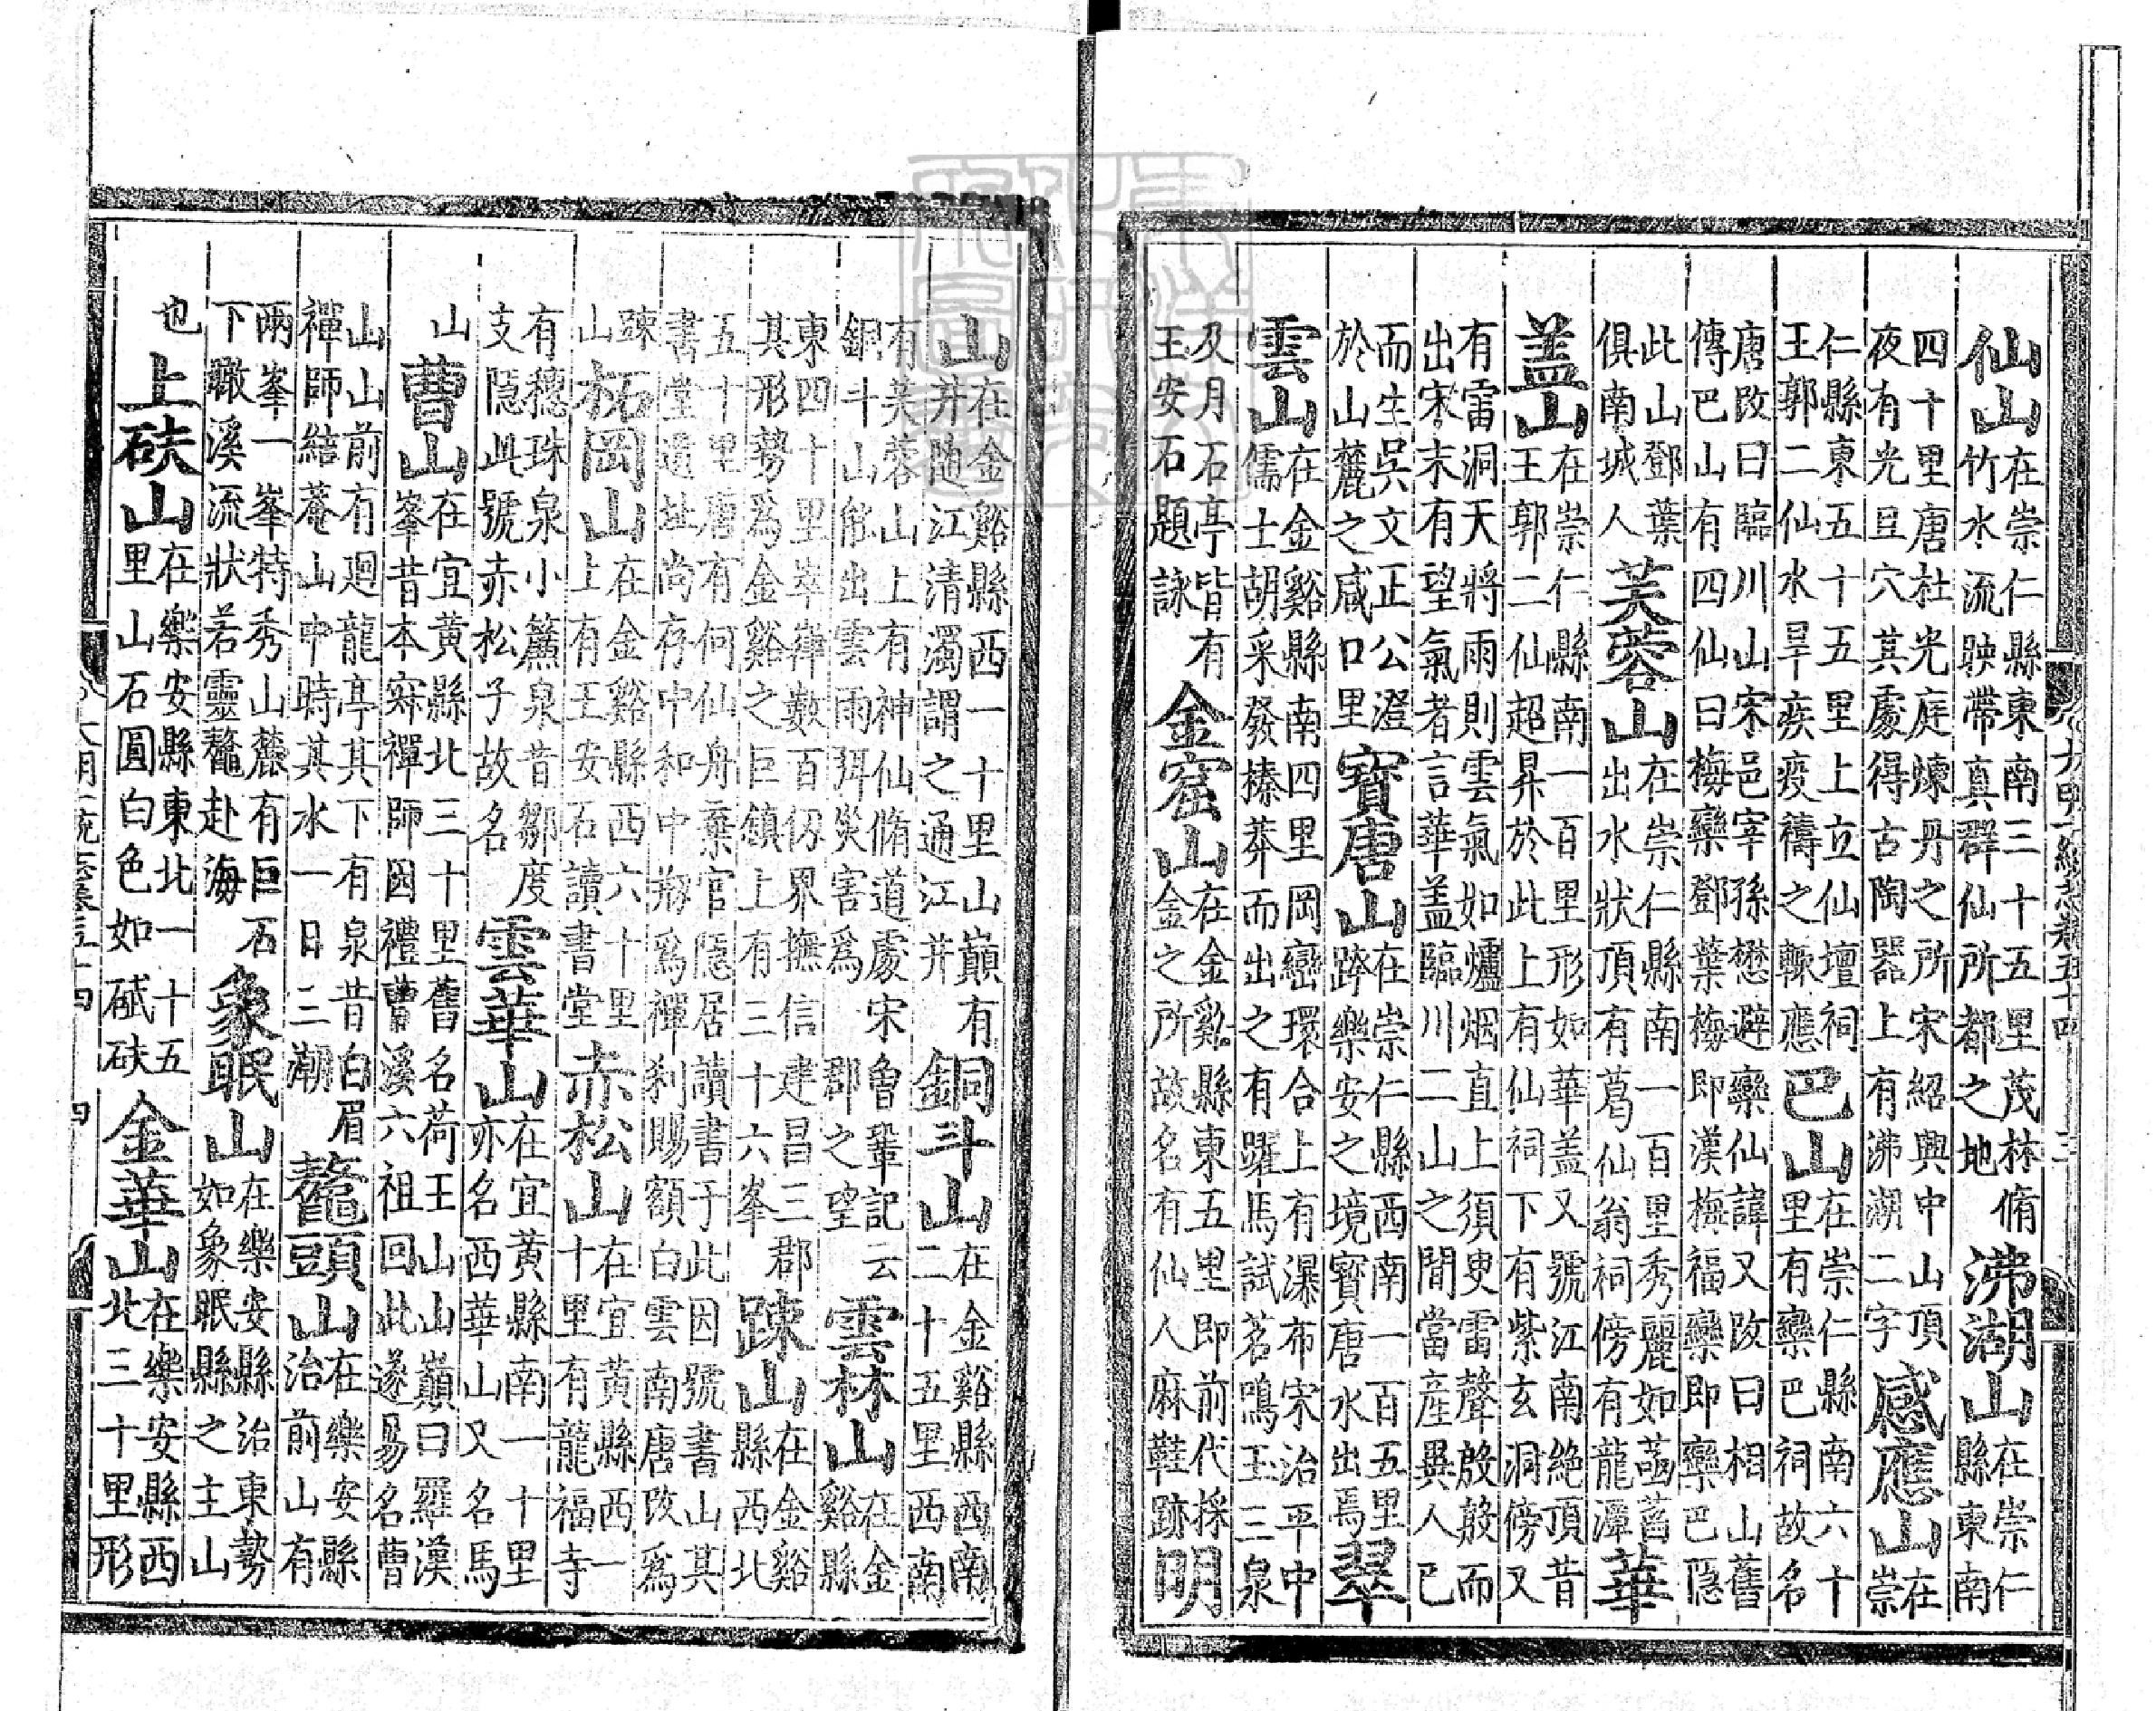 大明一統志卷五十四 三
仙山在崇仁縣東南三十五里茂林脩竹水流映帶真群仙所都之地沸湖山在崇仁縣東南
四十里唐杜光庭煉丹之所宋紹興中山頂夜有光旦穴其處得古陶器上有沸湖二字感應山在崇
仁縣東五十五里上立仙壇祠王郭二仙水旱疾疫禱之輒應巴山在崇仁縣南六十里有欒巴祠故名
唐改曰臨川山宋邑宰孫懋避欒仙諱又改曰相山舊傳巴山有四仙曰梅欒鄧葉梅即漢梅福欒即欒巴隱
此山鄧葉俱南城人芙蓉山在崇仁縣南一百里秀麗如菡萏出水狀頂有葛仙翁祠傍有龍潭華
盖山在崇仁縣南一百里形如華盖又號江南絶頂昔王郭二仙超昇於此上有仙祠下有紫玄洞傍又
有雷洞天將雨則雲氣如爐烟直上須臾雷聲殷殷而出宋末有望氣者言華盖臨川二山之間當産異人已
而生吳文正公澄於山麓之咸口里寶唐山在崇仁縣西南一百五里跨樂安之境寶唐水出焉翠
雲山在金谿縣南四里岡巒環合上有瀑布宋治平中儒士胡采發榛莽而出之有躍馬試茗鳴玉三泉
及月石亭皆有王安石題詠金窟山在金谿縣東五里即前代採金之所故名有仙人麻鞋跡明
山在金谿縣西一十里山巔有井随江清濁謂之通江井銅斗山在金谿縣西南二十五里西南
有芙蓉山上有神仙脩道處宋曾鞏記云銅斗山能出雲雨弭災害為郡之望雲林山在金谿縣
東四十里崒嵂數百仭界撫信建昌三郡其形勢為金谿之巨鎮上有三十六峯踈山在金谿縣西北
五十里唐有何仙舟棄官隱居讀書于此因號書山其書堂遺址尚存中和中剏為禪刹賜額白雲南唐改為
踈山柘岡山在金谿縣西六十里上有王安石讀書堂赤松山在宜黄縣西一十里有龍福寺
有穗珠泉小簾泉昔鄒度支隱此號赤松子故名雲華山在宜黄縣南一十里亦名西華山又名馬
山曹山在宜黄縣北三十里舊名荷王山山巔曰羅漢峯昔本寂禪師因禮曹溪六祖回此遂易名曹
山山前有廻龍亭其下有泉昔白眉禪師結菴山中時其水一日三潮鼇頭山在樂安縣治前山有
兩峯一峯特秀山麓有巨石下瞰溪流狀若靈鼇赴海象眠山在樂安縣治東勢如象眠縣之主山
也上砆山在樂安縣東北一十五里山石圓白色如碔砆金華山在樂安縣西北三十里形
大明一統志卷五十四 四